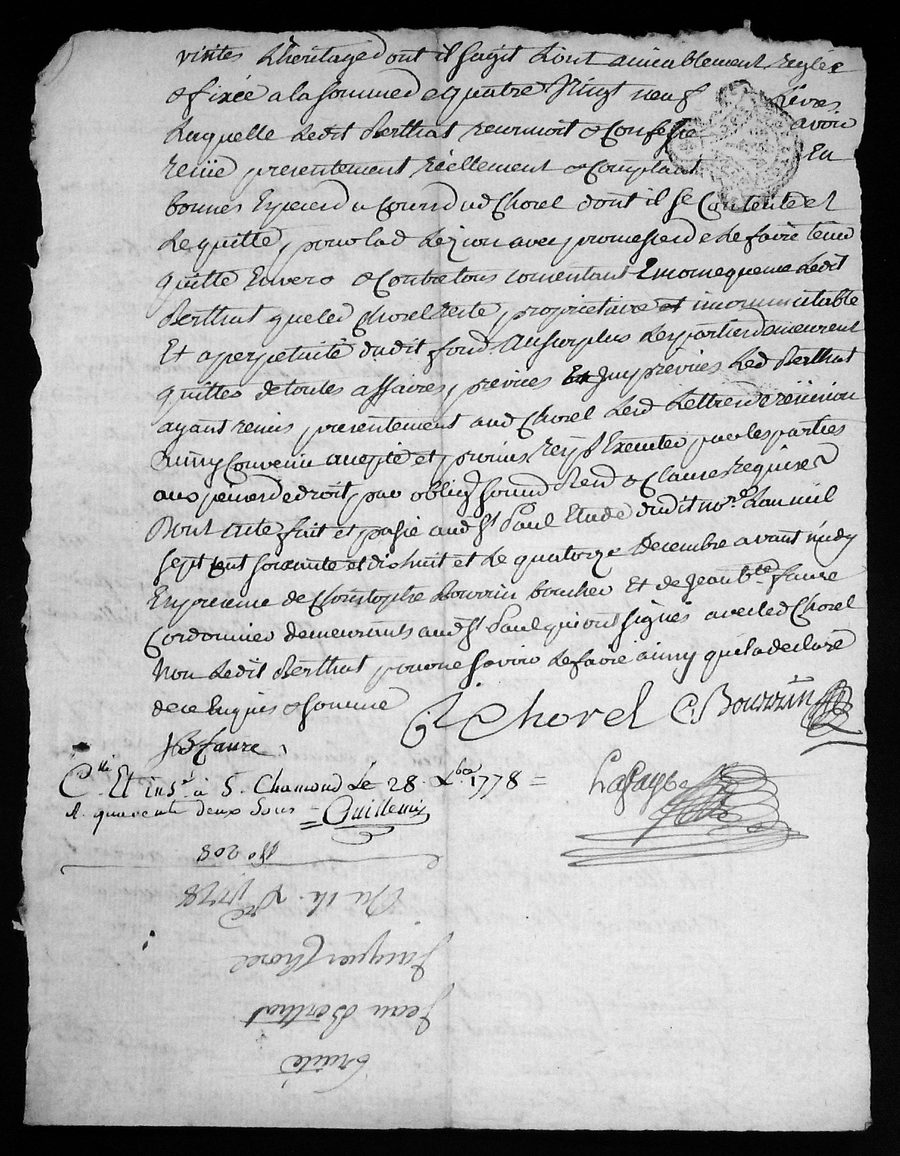 visites L'heritage dont il sagit Sont amicablement reglée
& fixée a la somme de quatre Vingt neuf Livres
Laquelle Ledit Berthat reconnoit & Confesse avoir
reçüe presentement réellement & Comptant En
bonnes Especes du Cours dud Chorel dont il se Contente et
Le quitte pour lad Lezion avec promesse de Le faire tenir
quitte Envers & Contre tous consentant En consequence Ledit
Berthat que led Chorel reste proprietaire incommutable
Et a perpetuité dudit fond. Au surplus Les parties demeurent
quittes de toutes affaires prévües Et Imprévües Led Berthat
ayant remis presentement aud Chorel Lesd Lettres de réünion
Ainsy Convenu accepté et promis Exécuter par les parties
aux peines de droit par oblig Soumd Rend & Clauses requises
Dont acte fait et passé aud St Paul Etude dudit nore. Lan mil
sept cent soixante et dix huit et Le quatorze Decembre avant midy
En presence de Christophe Bourrin boucher Et de Jean Bte faure
Cordonnier demeurants aud St Paul qui ont signés avec led Chorel
Non Ledit Berthat pour ne savoir Le faire ainsy qu'il a declaré
de ce Enquis & sommé
Chorel C. Bourrin
JB faure
Clle. Et insé à S. Chamond Le 28. Xbre 1778 =
R. quarante deux Sous = Guillemin
No 208
Du 14. Xbre 1778
Jacques Chorel
Jean Berthat
Traité